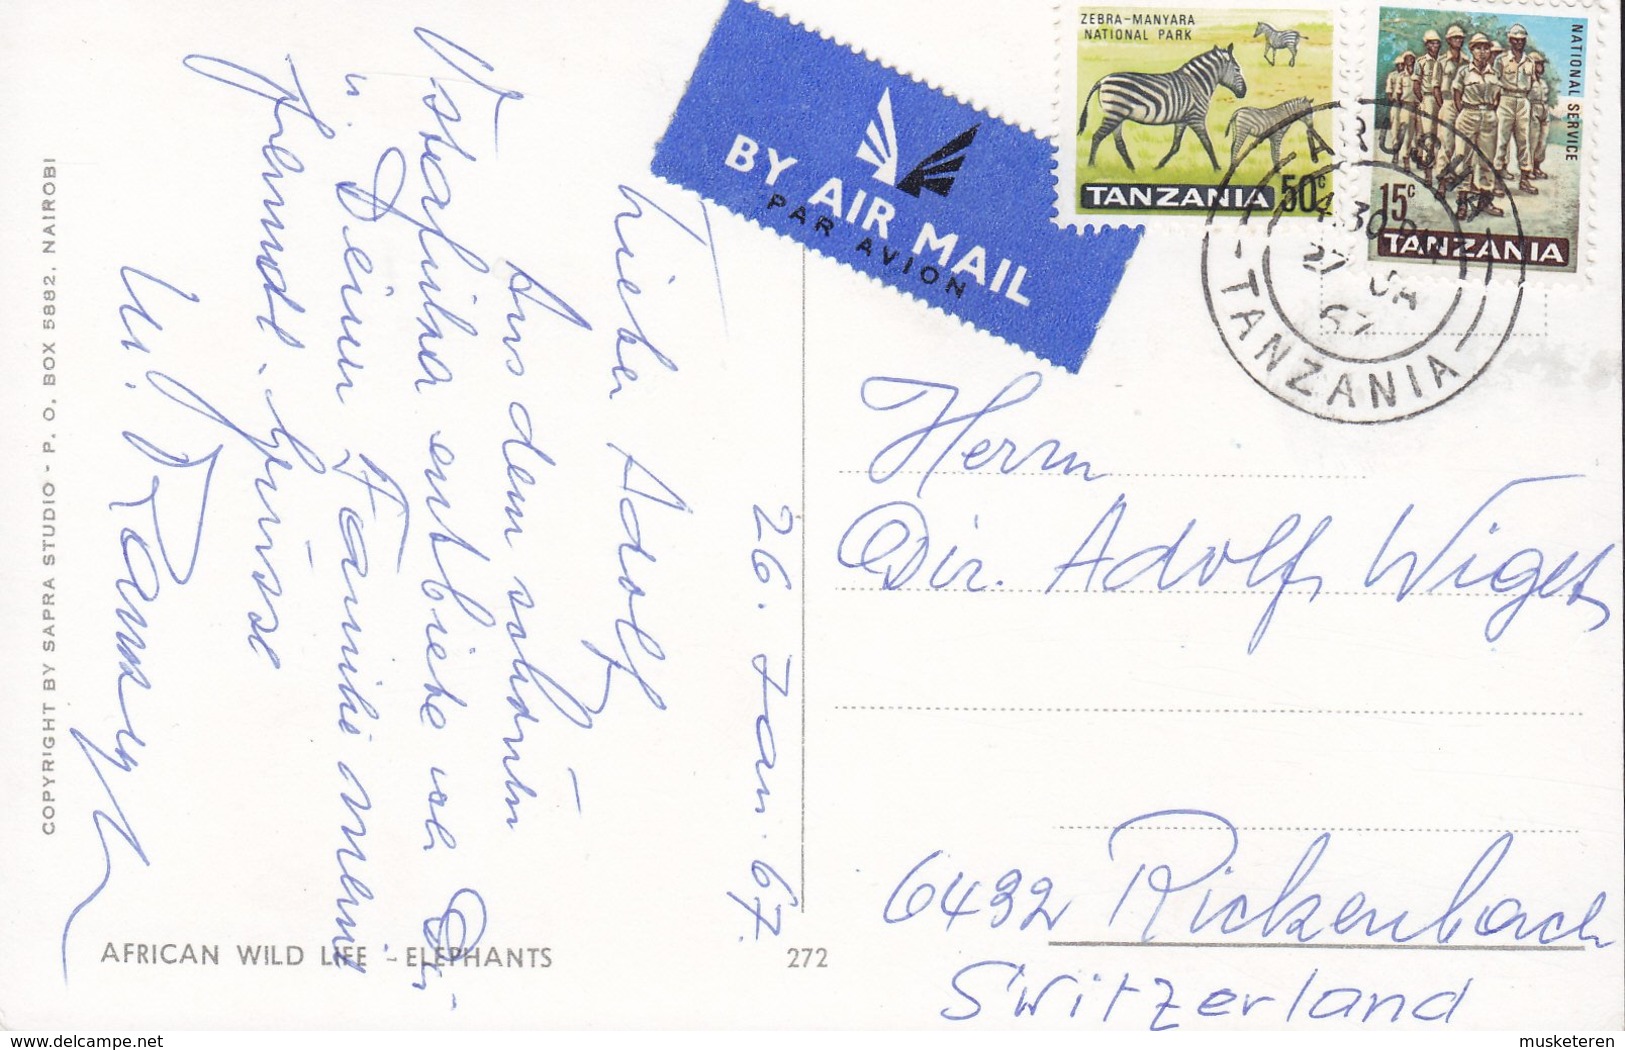 ZEBRA-MANYARA
NATIONAL PARK
TANZANIA 50c
NATIONAL SERVICE
15c
TANZANIA
BY AIR MAIL
PAR AVION
ARUSHA
4.30 PM
27 JA
67
TANZANIA
26. Jan. 67.
Lieber Adolf
Aus dem schönen
Ostafrika entbiete ich Dir
u. Deiner Familie meine
Freundl. Grüsse
Herrn
Dir. Adolf Wiget
6432 Rickenbach
Switzerland
AFRICAN WILD LIFE - ELEPHANTS
272
COPYRIGHT BY SAPRA STUDIO - P. O. BOX 5882, NAIROBI
www.delcampe.net
musketeren